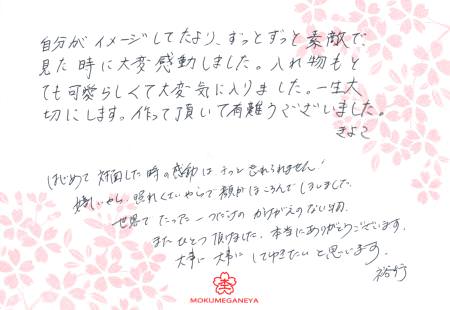 自分がイメージしてたより、ずっとずっと素敵で
見た時に大変感動しました。入れ物もと
ても可愛らしくて大変気に入りました。一生大
切にします。作って頂いて有難うございました。
きよこ
はじめて対面した時の感動は一生忘れられません!
嬉しいやら、照れくさいやらで顔がほころんでしまいました。
世界でたった一つだけのかけがえのない物。
またひとつ頂けました。本当にありがとうございます。
大事に大事にしてゆきたいと思います。
裕行
MOKUMEGANEYA